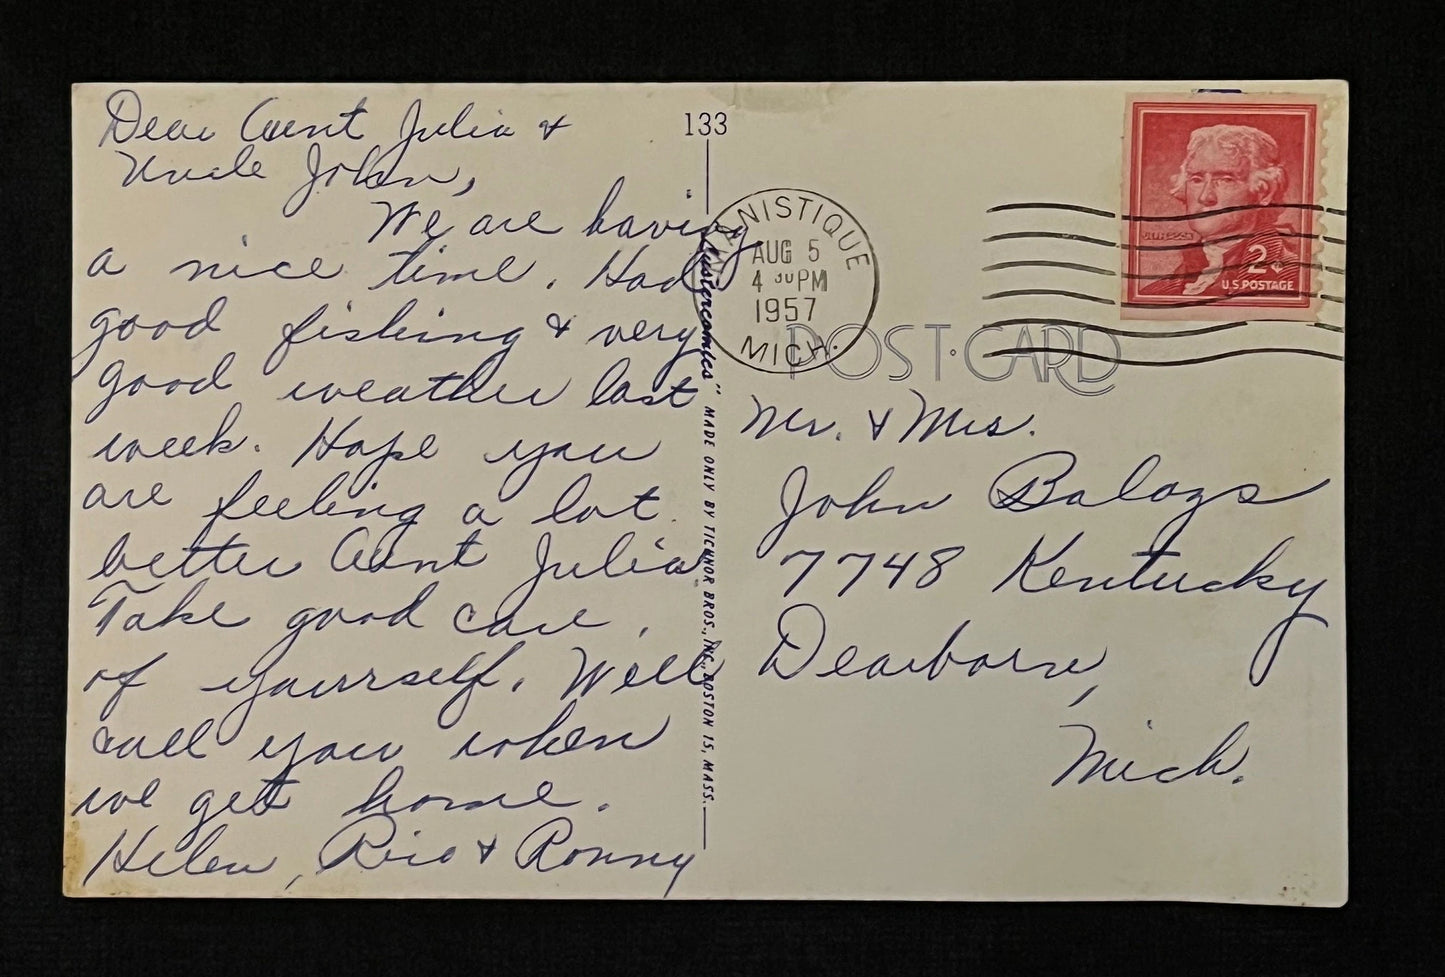 Dear Aunt Julia &
Uncle John,
We are having
a nice time. Had
good fishing & very
good weather last
week. Hope you
are feeling a lot
better Aunt Julia.
Take good care
of yourself. Well
call you when
we get home.
Helen, & Ronny
133
"Lustercomics" MADE ONLY BY TICHNOR BROS., INC., BOSTON 15, MASS.
MANISTIQUE
AUG 5
4 30 PM
1957
MICH.
JEFFERSON
2¢
U.S. POSTAGE
POST·CARD
Mr. & Mrs.
John Balazs
7748 Kentucky
Dearborn,
Mich.